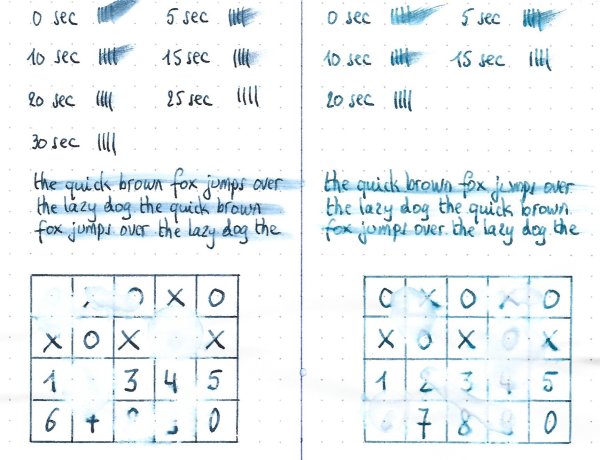 0 sec 5 sec
10 sec 15 sec
20 sec 25 sec
30 sec
the quick brown fox jumps over
the lazy dog the quick brown
fox jumps over the lazy dog the
X O
X O X X
1 3 4 5
6 0
0 sec 5 sec
10 sec 15 sec
20 sec
the quick brown fox jumps over
the lazy dog the quick brown
fox jumps over the lazy dog the
O X O X O
X O X O X
1 2 3 4 5
7 8 0